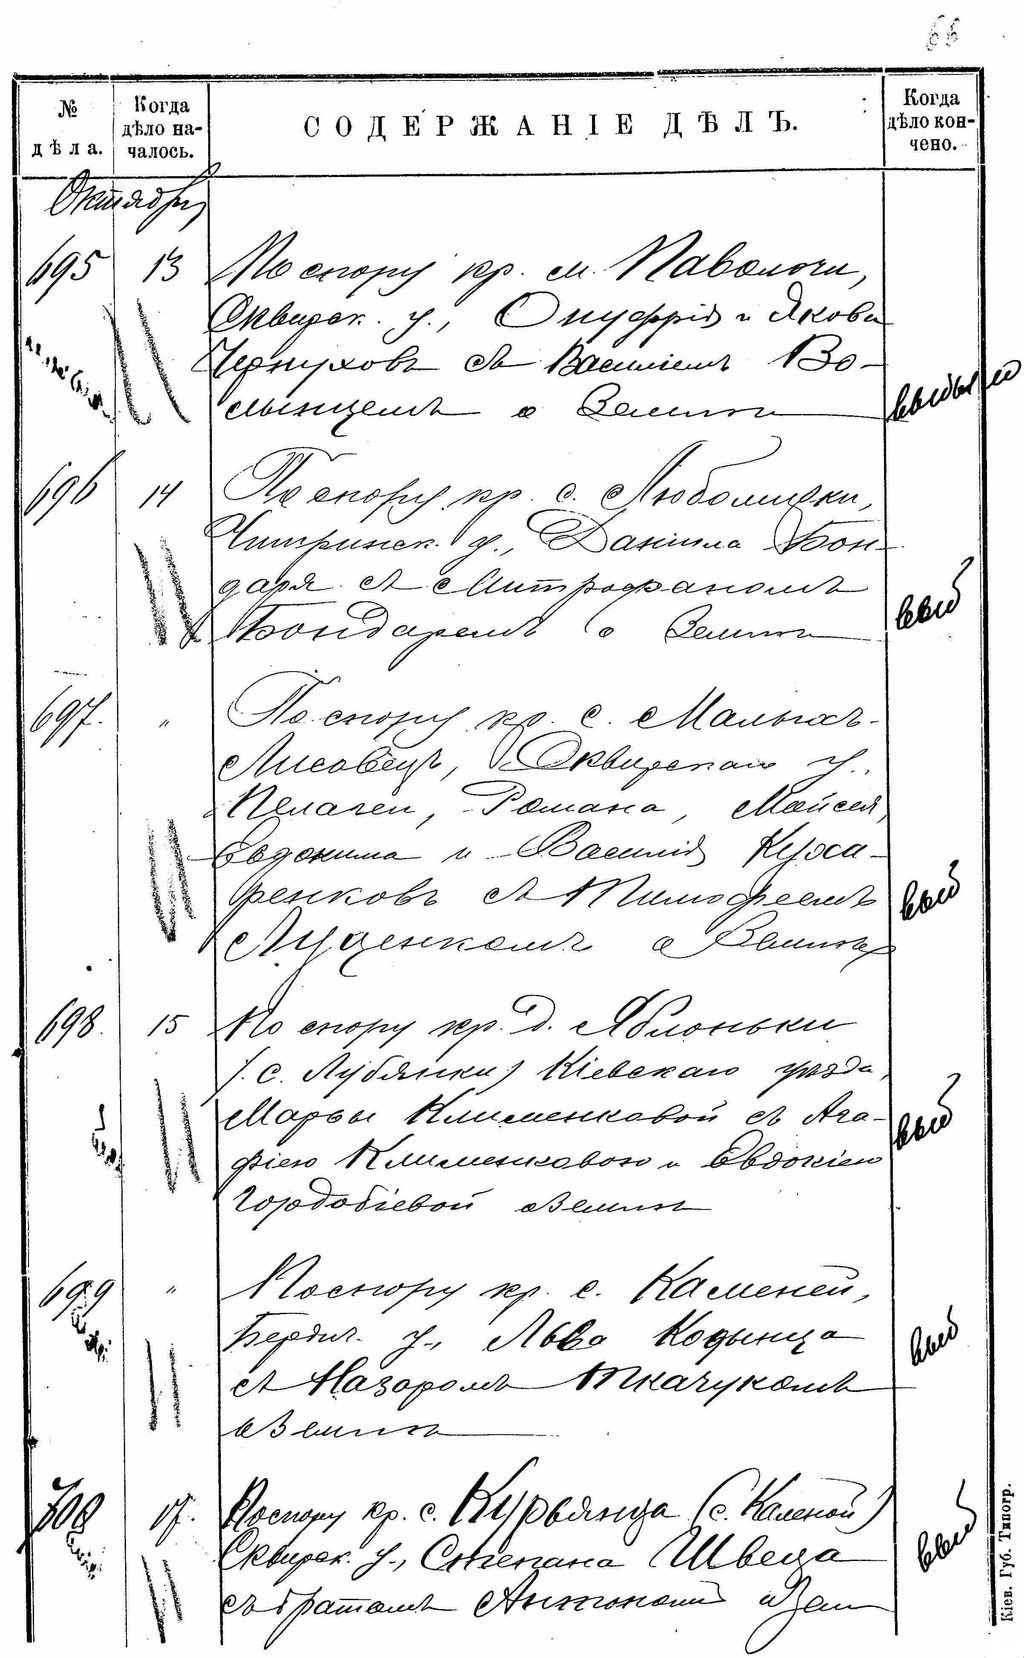 66
№ дѣла.
Когда дѣло началось.
СОДЕРЖАНІЕ ДѢЛЪ.
Когда дѣло кончено.
Октябрь
695 13 По спору кр. м. Паволочи,
Сквирск. у., Онуфрія и Якова
Чернуховъ съ Василіемъ Во-
лынцемъ о земли
696 14 По спору кр. с. Любомирки,
Чигринск. у., Даніила Бон-
даря съ Митрофаномъ
Бондаремъ о земли
выб
697. " По спору кр. с. Малыхъ-
Лисовецъ, Сквирскаго у.
Пелагеи, Романа, Мойсея,
Евдокима и Василія Куха-
ренковъ съ Тимофеемъ
Луценкомъ о земли
выб
698. 15 По спору кр. д. Яблоньки
(с. Лубянки) Кіевскаго уѣзда,
Марьи Клименковой съ Ага-
фіею Клименковою и Евдокіею
Гордобіевой о земли
выб
699 " По спору кр. с. Каменей,
Бердич. у., Льва Кодынца
съ Назаромъ Ткачукомъ
о земли
выб
700 17. По спору кр. с. Курьянца (с. Каленой)
Сквирск. у., Степана Швеца
съ братомъ Антономъ о зем
выб
Кіев. Губ. Типогр.